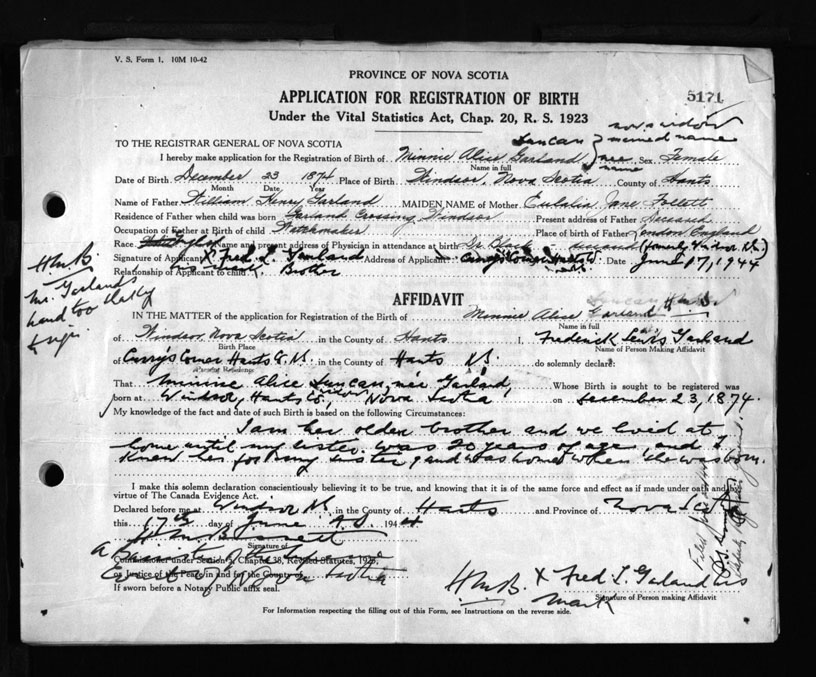 V. S. Form 1. 10M 10-42
PROVINCE OF NOVA SCOTIA
5171
APPLICATION FOR REGISTRATION OF BIRTH
Under the Vital Statistics Act, Chap. 20, R. S. 1923
now widow
married name
TO THE REGISTRAR GENERAL OF NOVA SCOTIA
Duncan
I hereby make application for the Registration of Birth of Minnie Alice Garland, nee name Sex Female
Name in full
Date of Birth December 23 1874 Place of Birth Windsor, Nova Scotia County of Hants
Month Date Year
Name of Father William Henry Garland MAIDEN NAME of Mother Eulalia Jane Follett
Residence of Father when child was born Garland Crossing Windsor Present address of Father Deceased
Occupation of Father at Birth of child Watchmaker Place of birth of Father London England
Race. English Name and present address of Physician in attendance at birth Dr. Black (formerly Windsor N.S.)
Signature of Applicant X Fred L. Garland Address of Applicant Curry's Corner Hants Co. Date June 17, 1944
his mark
Relationship of Applicant to child Brother
H.M.B.
Mr. Garland's
hand too shaky
to sign
AFFIDAVIT
Duncan
IN THE MATTER of the application for Registration of the Birth of Minnie Alice Garland
Name in full
of Windsor Nova Scotia in the County of Hants I, Frederick Lewis Garland
Birth Place
Name of Person Making Affidavit
of Curry's Corner Hants Co. N.S. in the County of Hants N.S. do solemnly declare:
That Minnie Alice Duncan, née Garland, Whose Birth is sought to be registered was
born at Windsor, Hants Co., Nova Scotia on December 23, 1874.
My knowledge of the fact and date of such Birth is based on the following Circumstances:
I am her older brother and we lived at
home until my sister was 20 years of age, and I
knew her for my sister, and was home when she was born.
I make this solemn declaration conscientiously believing it to be true, and knowing that it is of the same force and effect as if made under oath and by
virtue of The Canada Evidence Act.
Declared before me at Windsor N.S. in the County of Hants and Province of Nova Scotia
this 17th day of June A.D. 1944
H.M. Bennett
Signature of
A Barrister of the Supreme
Commissioner under Section 3, Chapter 38, Revised Statutes, 1923,
Court of Nova Scotia
or Justice of the Peace in and for the County
If sworn before a Notary Public affix seal.
H.M.B. X Fred L. Garland his
Mark
Signature of Person making Affidavit
For Information respecting the filling out of this Form, see Instructions on the reverse side.